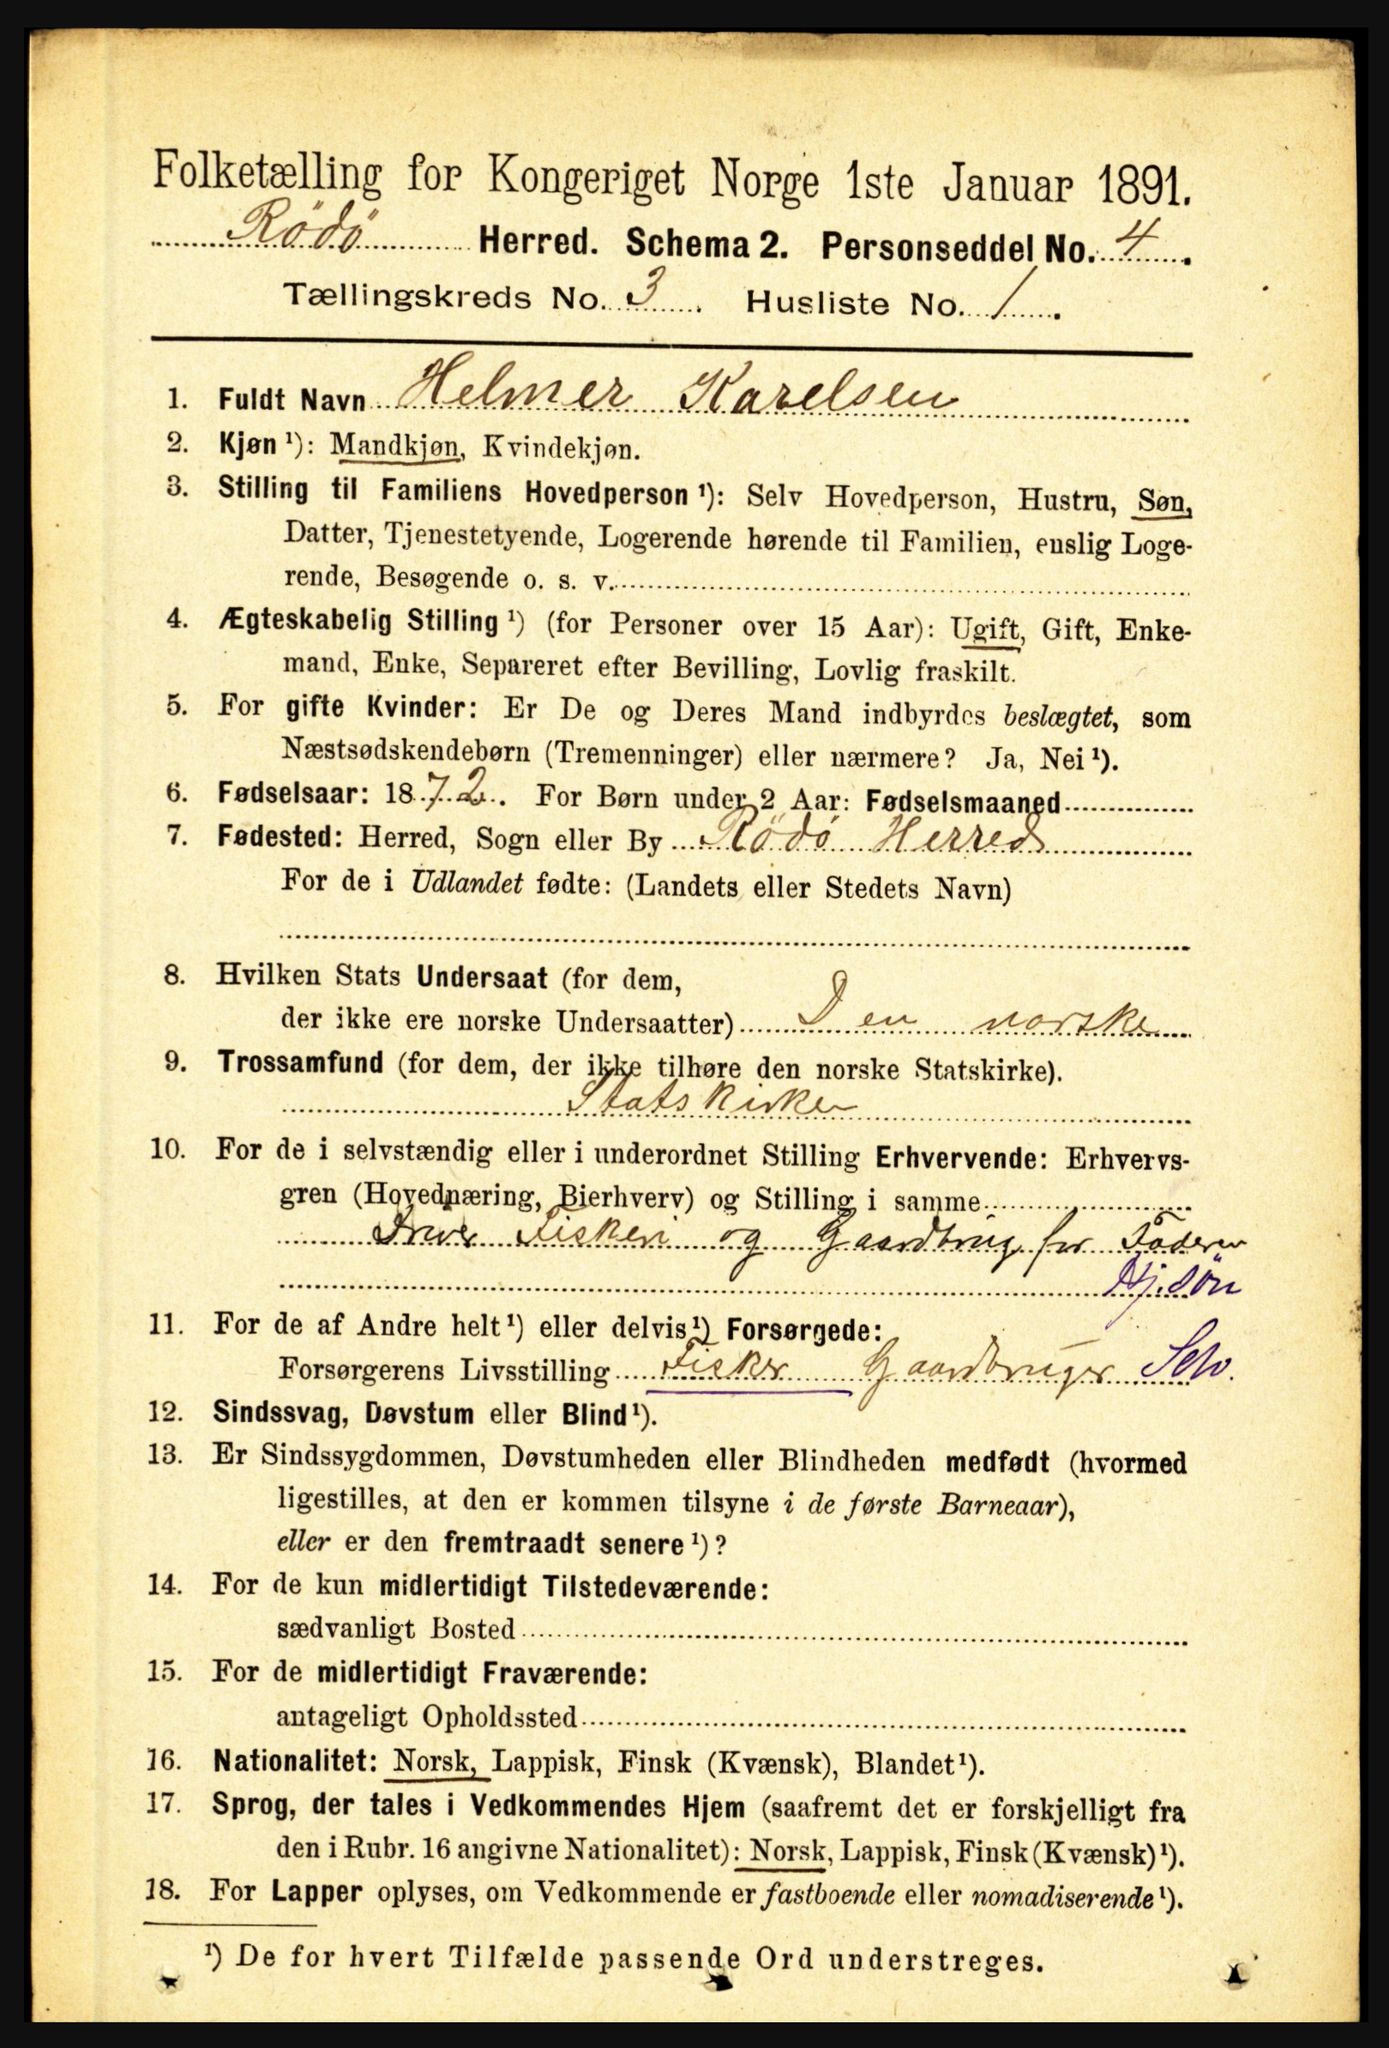 Folketælling for Kongeriget Norge 1ste Januar 1891.
Rödö Herred. Schema 2. Personseddel No. 4.
Tællingskreds No. 3. Husliste No. 1.
1. Fuldt Navn Helmer Karelsen
2. Kjøn ¹): Mandkjøn, Kvindekjøn.
3. Stilling til Familiens Hovedperson ¹): Selv Hovedperson, Hustru, Søn,
Datter, Tjenestetyende, Logerende hørende til Familien, enslig Loge-
rende, Besøgende o. s. v.
4. Ægteskabelig Stilling ¹) (for Personer over 15 Aar): Ugift, Gift, Enke-
mand, Enke, Separeret efter Bevilling, Lovlig fraskilt.
5. For gifte Kvinder: Er De og Deres Mand indbyrdes beslægtet, som
Næstsødskendebørn (Tremenninger) eller nærmere? Ja, Nei ¹).
6. Fødselsaar: 1872. For Børn under 2 Aar: Fødselsmaaned
7. Fødested: Herred, Sogn eller By Rödö Herred
For de i Udlandet fødte: (Landets eller Stedets Navn)
8. Hvilken Stats Undersaat (for dem,
der ikke ere norske Undersaatter) Den norske
9. Trossamfund (for dem, der ikke tilhøre den norske Statskirke).
Statskirken
10. For de i selvstændig eller i underordnet Stilling Erhvervende: Erhvervs-
gren (Hovednæring, Bierhverv) og Stilling i samme
Driver Fiskeri og Gaardbrug for Faderen
Hj. søn
11. For de af Andre helt ¹) eller delvis ¹) Forsørgede:
Forsørgerens Livsstilling Fisker Gaardbruger Selv.
12. Sindssvag, Døvstum eller Blind ¹).
13. Er Sindssygdommen, Døvstumheden eller Blindheden medfødt (hvormed
ligestilles, at den er kommen tilsyne i de første Barneaar),
eller er den fremtraadt senere ¹)?
14. For de kun midlertidigt Tilstedeværende:
sædvanligt Bosted
15. For de midlertidigt Fraværende:
antageligt Opholdssted
16. Nationalitet: Norsk, Lappisk, Finsk (Kvænsk), Blandet ¹).
17. Sprog, der tales i Vedkommendes Hjem (saafremt det er forskjelligt fra
den i Rubr. 16 angivne Nationalitet): Norsk, Lappisk, Finsk (Kvænsk) ¹).
18. For Lapper oplyses, om Vedkommende er fastboende eller nomadiserende ¹).
¹) De for hvert Tilfælde passende Ord understreges.